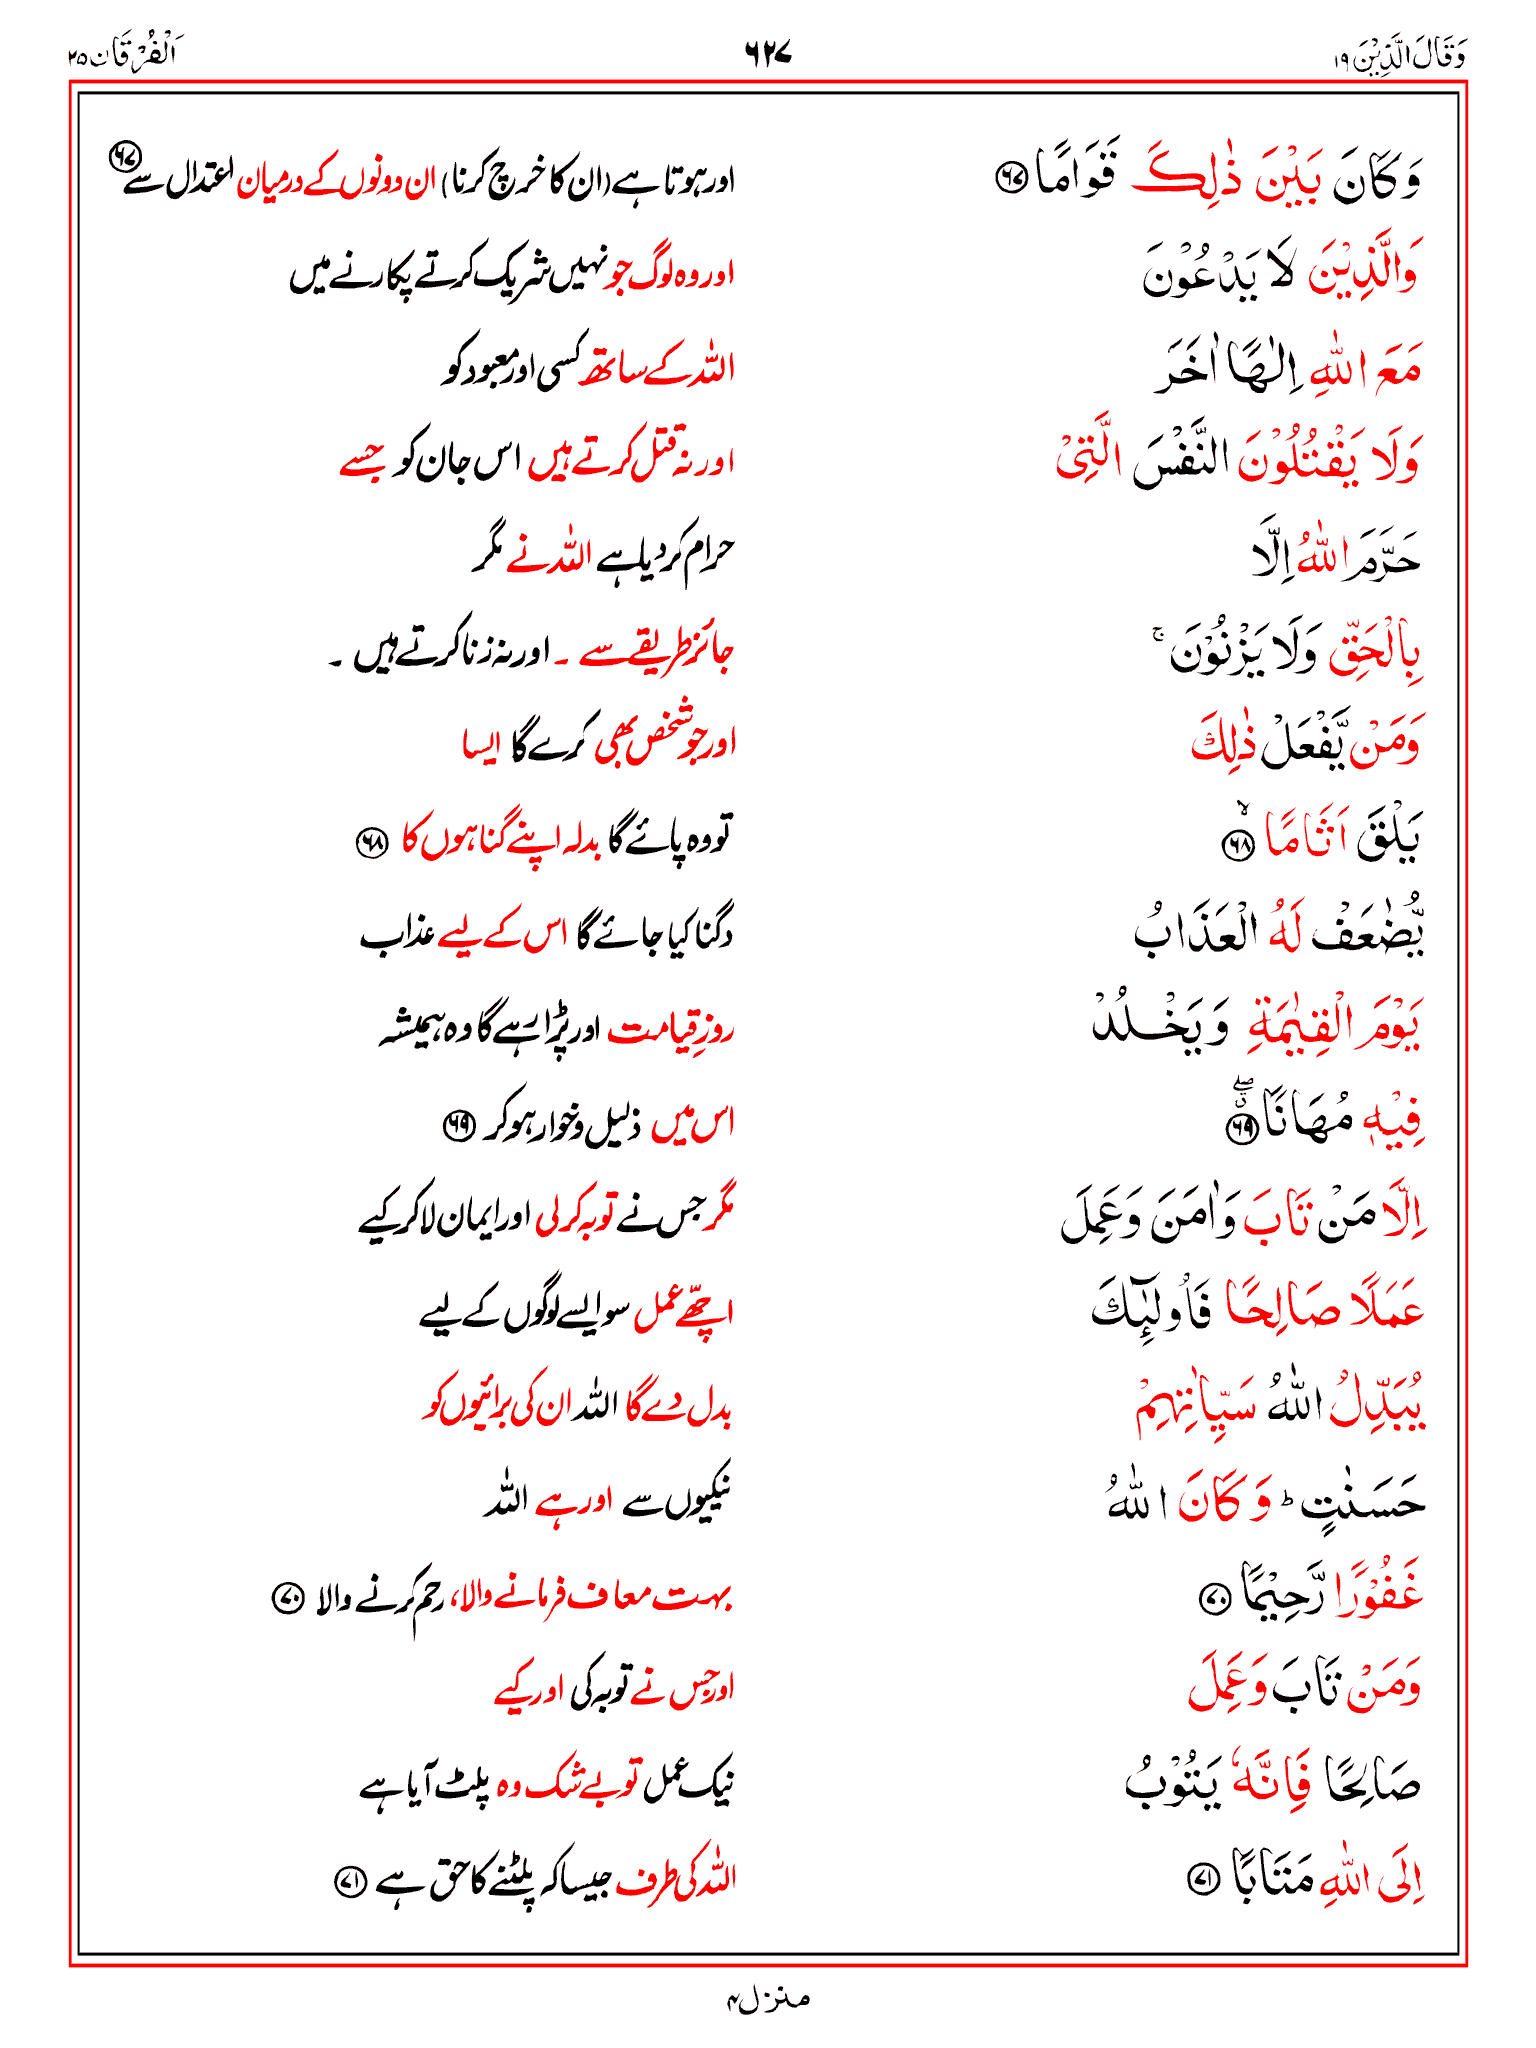 وَقَالَ الَّذِيْنَ ١٩ ٦٢٧ اَلْفُرْقَان ٢٥
وَكَانَ بَيْنَ ذٰلِكَ قَوَامًا ﴿٦٧﴾ اور ہوتا ہے (ان کا خرچ کرنا) ان دونوں کے درمیان اعتدال سے ﴿٦٧﴾
وَالَّذِيْنَ لَا يَدْعُوْنَ اور وہ لوگ جو نہیں شریک کرتے پکارنے میں
مَعَ اللّٰهِ اِلٰهًا اٰخَرَ اللہ کے ساتھ کسی اور معبود کو
وَلَا يَقْتُلُوْنَ النَّفْسَ الَّتِيْ اور نہ قتل کرتے ہیں اس جان کو جسے
حَرَّمَ اللّٰهُ اِلَّا حرام کر دیا ہے اللہ نے مگر
بِالْحَقِّ وَلَا يَزْنُوْنَ ۚ جائز طریقے سے ۔ اور نہ زنا کرتے ہیں ۔
وَمَنْ يَّفْعَلْ ذٰلِكَ اور جو شخص بھی کرے گا ایسا
يَلْقَ اَثَامًا ۙ﴿٦٨﴾ تو وہ پائے گا بدلہ اپنے گناہوں کا ﴿٦٨﴾
يُّضٰعَفْ لَهُ الْعَذَابُ دگنا کیا جائے گا اس کے لیے عذاب
يَوْمَ الْقِيٰمَةِ وَيَخْلُدْ روزِ قیامت اور پڑا رہے گا وہ ہمیشہ
فِيْهٖ مُهَانًا ۖۗ﴿٦٩﴾ اس میں ذلیل و خوار ہو کر ﴿٦٩﴾
اِلَّا مَنْ تَابَ وَاٰمَنَ وَعَمِلَ مگر جس نے توبہ کر لی اور ایمان لا کر کیے
عَمَلًا صَالِحًا فَاُولٰٓئِكَ اچھّے عمل سو ایسے لوگوں کے لیے
يُبَدِّلُ اللّٰهُ سَيِّاٰتِهِمْ بدل دے گا اللہ ان کی برائیوں کو
حَسَنٰتٍ ؕ وَكَانَ اللّٰهُ نیکیوں سے اور ہے اللہ
غَفُوْرًا رَّحِيْمًا ﴿٧٠﴾ بہت معاف فرمانے والا، رحم کرنے والا ﴿٧٠﴾
وَمَنْ تَابَ وَعَمِلَ اور جس نے توبہ کی اور کیے
صَالِحًا فَاِنَّهٗ يَتُوْبُ نیک عمل تو بے شک وہ پلٹ آیا ہے
اِلَى اللّٰهِ مَتَابًا ﴿٧١﴾ اللہ کی طرف جیسا کہ پلٹنے کا حق ہے ﴿٧١﴾
منزل ۴